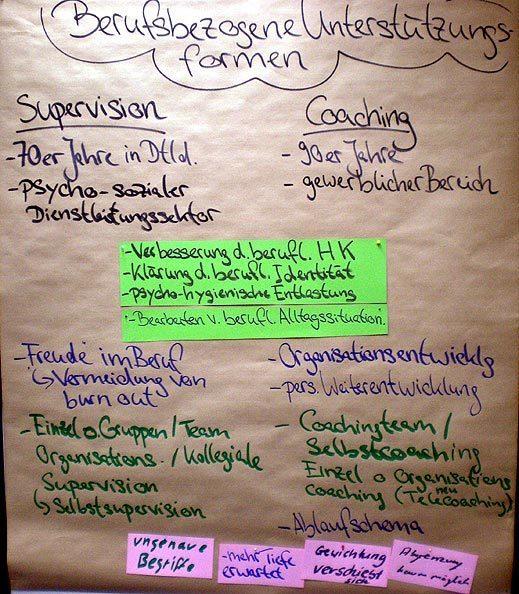 Berufsbezogene Unterstützungs-
formen
Supervision
- 70er Jahre in Dtld.
- psycho-sozialer
Dienstleistungssektor
Coaching
- 90er Jahre
- gewerblicher Bereich
- Verbesserung d. berufl. HK
- Klärung d. berufl. Identität
- psycho-hygienische Entlastung
- Bearbeiten v. berufl. Alltagssituation.
- Freude im Beruf
↳ Vermeidung von
burn out
- Einzel o. Gruppen/Team
Organisations-/Kollegiale
Supervision
↳ Selbstsupervision
- Organisationsentwicklg
- pers. Weiterentwicklung
- Coachingteam/
Selbstcoaching
Einzel o Organisations
coaching (neu Telecoaching)
- Ablaufschema
ungenaue
Begriffe
- mehr Tiefe
erwartet
Gewichtung
verschiebt
sich
Abgrenzung
kaum möglich